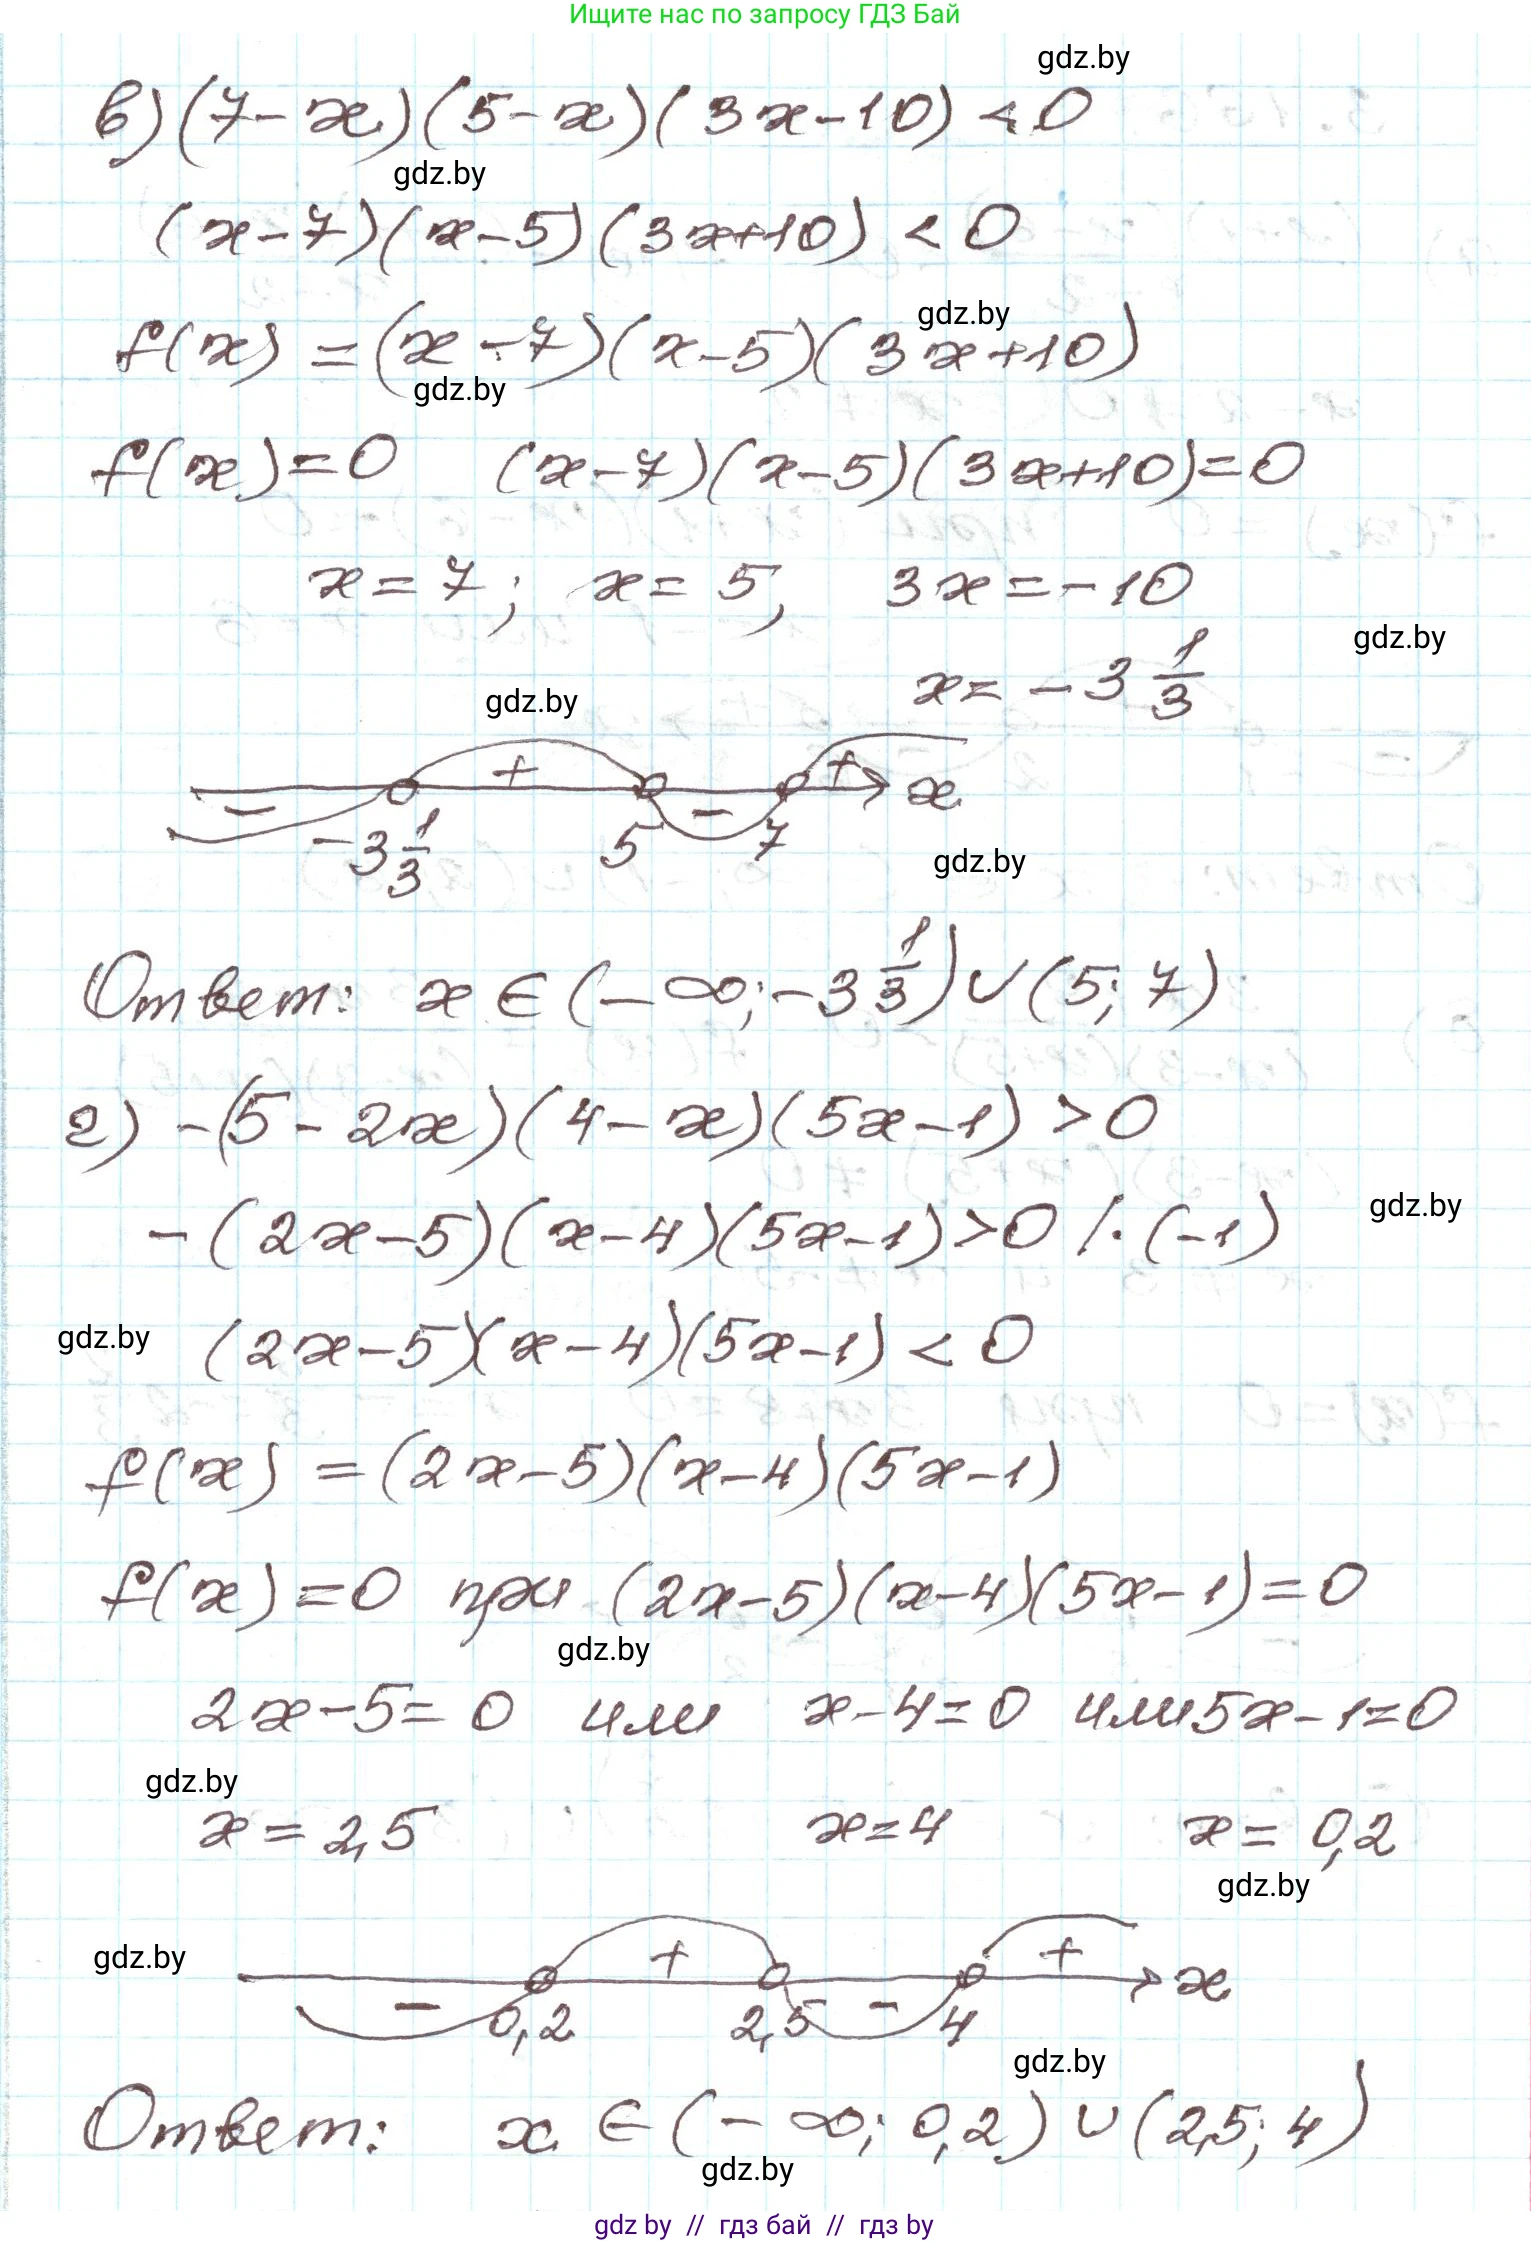 Ищите нас по запросу ГДЗ Бай
gdz.by
в) (7-x)(5-x)(3x-10) < 0
gdz.by
(x-7)(x-5)(3x+10) < 0
gdz.by
f(x) = (x-7)(x-5)(3x+10)
gdz.by
f(x) = 0 (x-7)(x-5)(3x+10) = 0
x = 7; x = 5, 3x = -10
gdz.by
x = -3 1/3
gdz.by
- + - + x
-3 1/3 5 7
gdz.by
Ответ: x ∈ (-∞; -3 1/3) ∪ (5; 7)
г) -(5-2x)(4-x)(5x-1) > 0
gdz.by
-(2x-5)(x-4)(5x-1) > 0 /·(-1)
gdz.by
(2x-5)(x-4)(5x-1) < 0
f(x) = (2x-5)(x-4)(5x-1)
f(x) = 0 при (2x-5)(x-4)(5x-1) = 0
gdz.by
2x-5 = 0 или x-4 = 0 или 5x-1 = 0
gdz.by
x = 2,5 x = 4 x = 0,2
gdz.by
gdz.by
- + - + x
0,2 2,5 4
gdz.by
Ответ: x ∈ (-∞; 0,2) ∪ (2,5; 4)
gdz.by
gdz by // гдз бай // гдз by